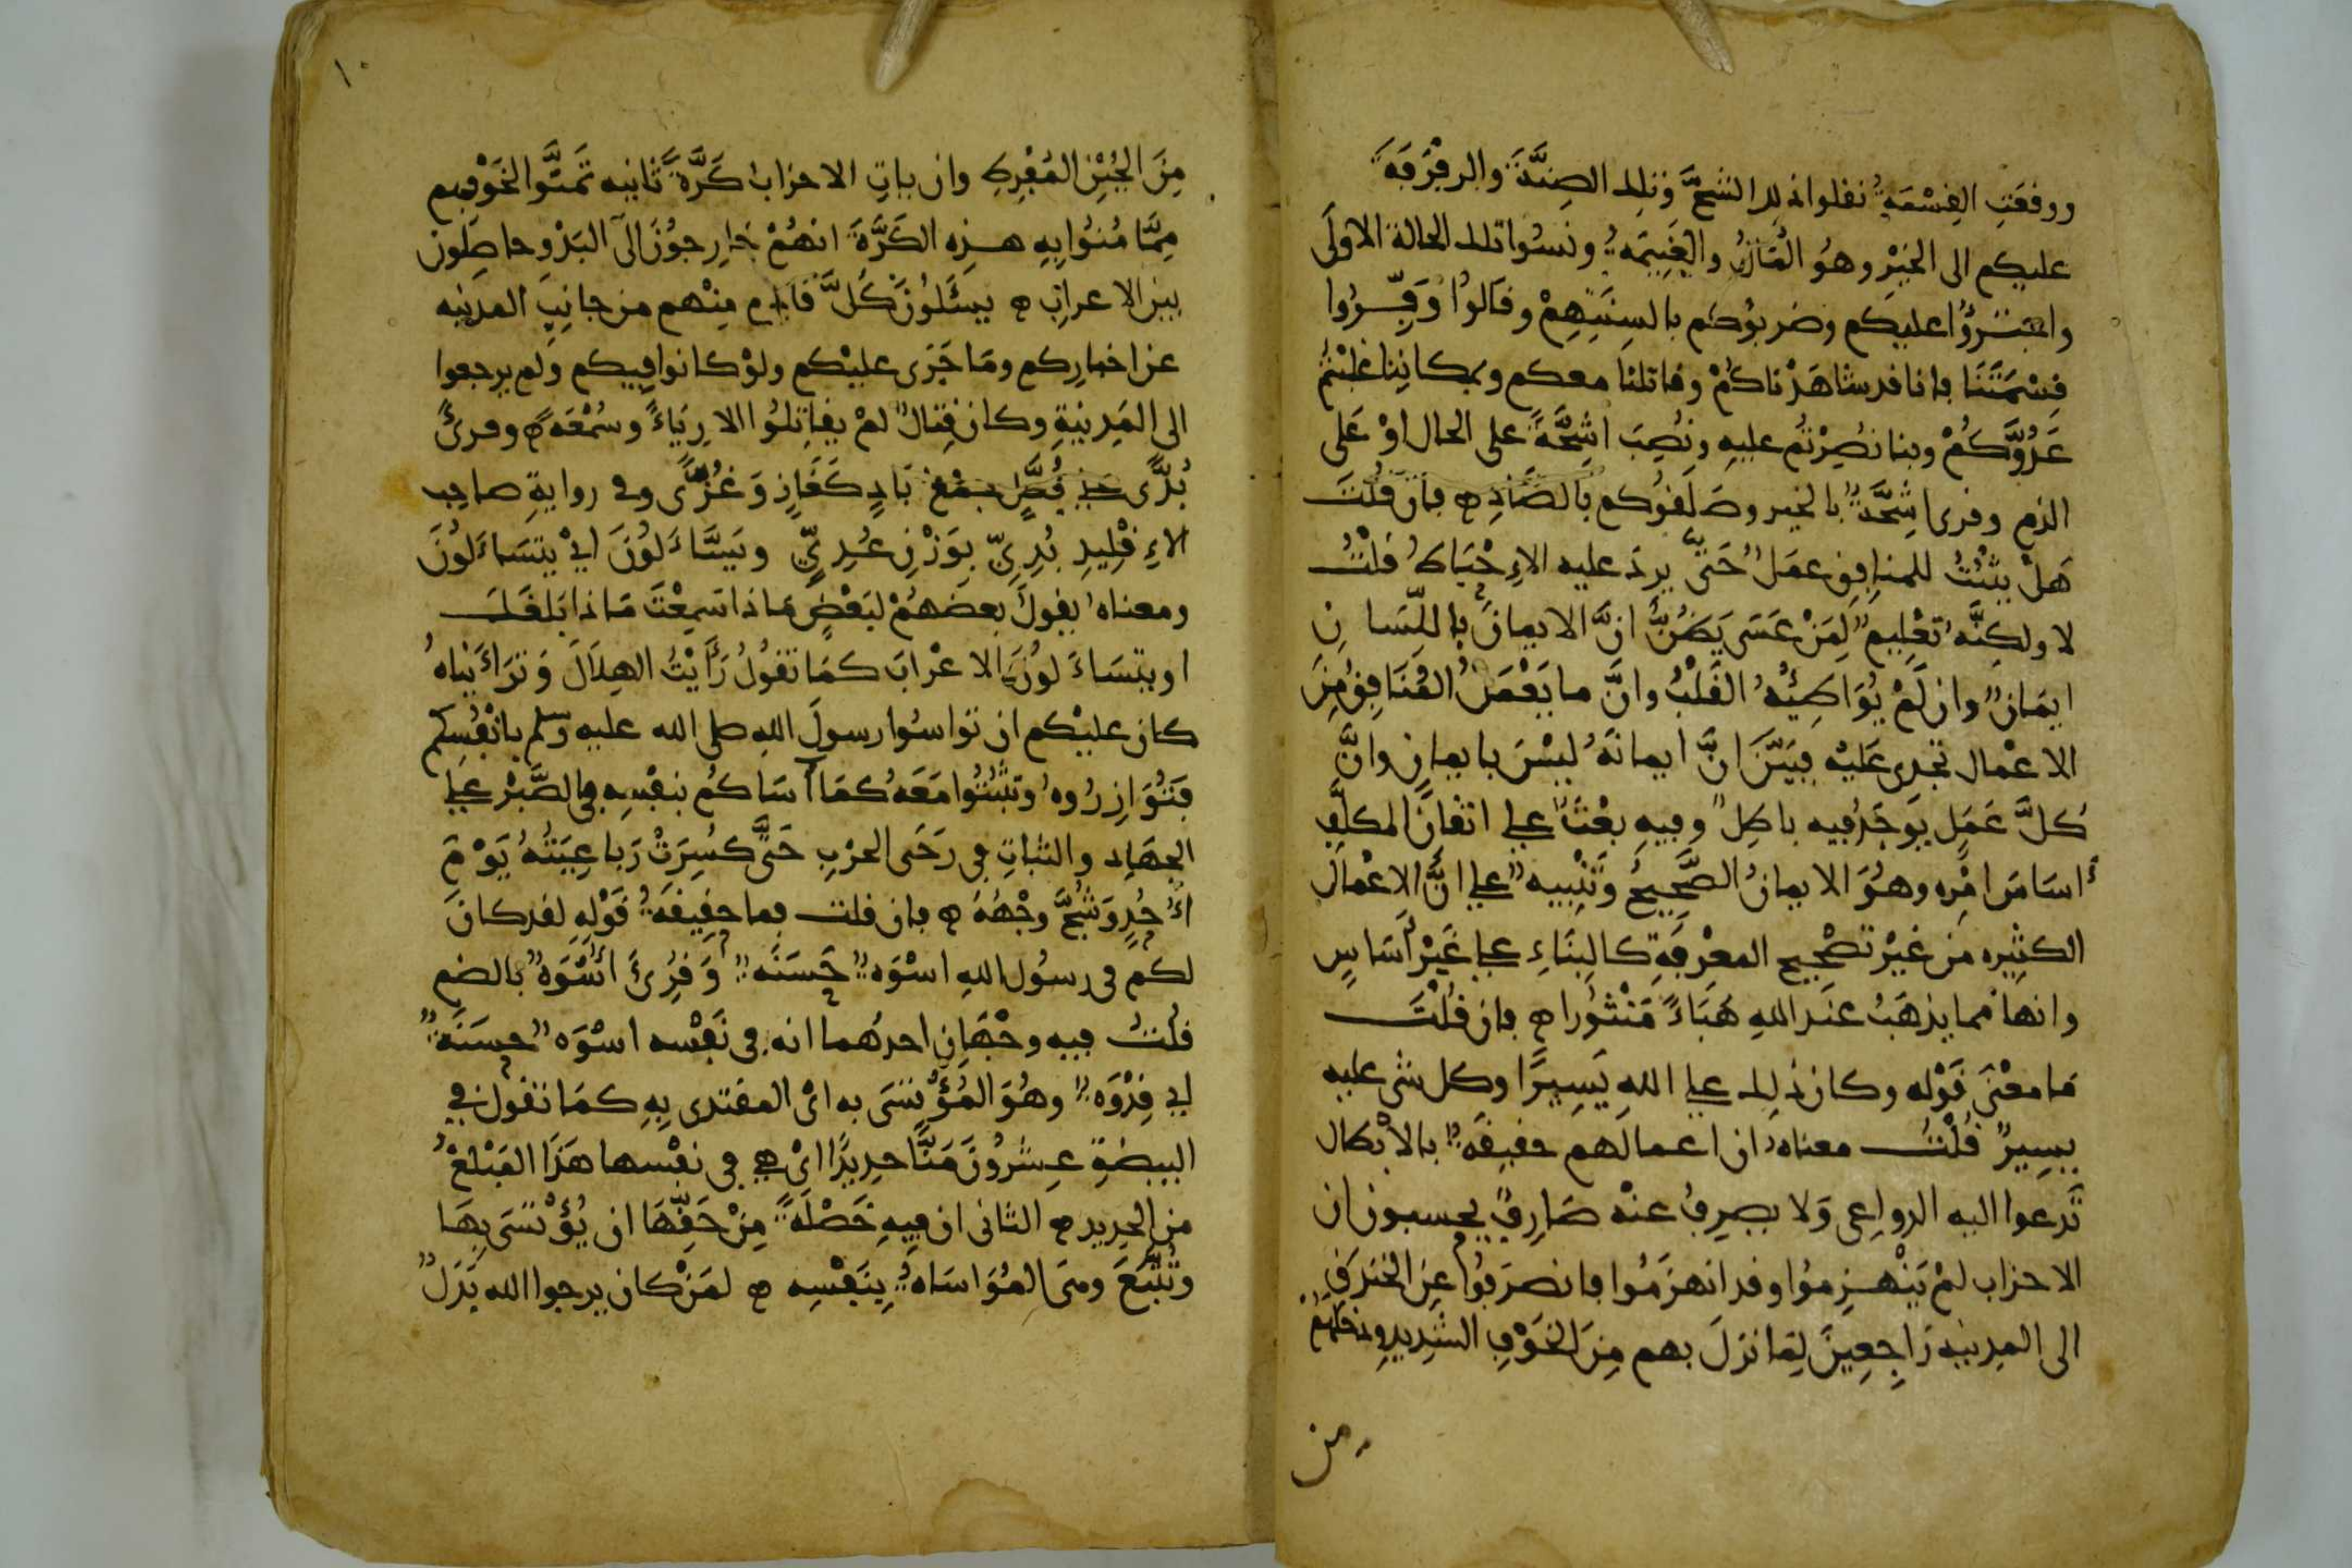 ووقعت القِسْمَةُ نقلوا ذلك الشحَّ وتلك الضِنَّةَ والرفْرَفَةَ
عليكم الى الخيْرِ وهُوَ المَالُ والغَنِيمَةُ ونسُوا تلك الحالة الاولَى
واجتَرَؤُا عليكم وضربُوكم بالسِنَتِهِمْ وقالُوا وَفِّرُوا
قِسْمَتَنَا فانا قد شاهَدْناكُمْ وقاتلنَا معكم وبمكانِنا غلبْتُم
عَدُوَّكُمْ وبنا نُصِرْتُم عليهِ ونُصِبَ اشِحَّةً على الحال اوْ عَلى
الذم وقرى اشِحَّةٌ بالخير وصَلَقوُكم بالصَّادِ فان قلْتَ
هَلْ يثْبُتُ للمنافِقِ عمَلٌ حَتَّى يردَ عليه الاِحْبَاطُ قلْتُ
لا ولكِنَّهُ تعْلِيمٌ لِمَنْ عَسَى يَظُنُّ انَّ الايمانَ باللِّسَانِ
ايمَانٌ وان لَمْ يُوَاطِئْهُ القَلْبُ وانَّ ما يَعْمَلُ المُنَافِقُ مِنَ
الاعْمال تجدى عَلَيْهِ فبَيَّنَ انَّ ايمانَهُ ليْسَ بايمانٍ وانَّ
كُلَّ عَمَلٍ يوجَدُ فيه باطِلٌ وفيهِ بعْثٌ على اتقَانِ المكلَّفِ
أساسَ امْرِه وهُوَ الايمانُ الصَّحِيحُ وتَنْبِيهٌ على انَّ الاعْمالَ
الكثِيره من غيْرِ تصْحِيحِ المعْرِفَةِ كالبِنَاءِ على غَيْرِ أسَاسٍ
وانها مما يذهَبُ عنَد اللهِ هَبَاءً مَنْثُورا فان قلْتَ
مَا معْنَى قَوْله وكان ذلِك على اللهِ يَسِيرًا وكل شى عليه
يسِيرٌ قُلْتُ معناهُ ان اعمالَهم حقيقَةٌ بالاِبْطال
تَدعوا اليه الدواعِى وَلا يصرِفُ عنْه صَارِفٌ يحسبون ان
الاحزاب لمْ يَنْهزِموُا وقد انهزَمُوا فانصرَفُوا عِن الخنْدَقِ
الى المدِينِه رَاجِعِينَ لِمَا نزلَ بهم مِنَ الخَوْفِ الشّدِيدِ ودَخلَهُمْ
من
١٠
مِنَ الجُبْنِ المُفْرِطِ وان ياتِ الاحزاب كَرَّةً ثانيه تَمنَّوا لخَوْفِهم
مِمَّا مُنُوا بِهِ هذِه الكَرَّةَ انهُمْ خَارِجوُنَ الَى البَدْوِ حاصِلُون
بين الاعرابِ يسْئَلوُنَ كُلَّ قادِم مِنْهم من جانِبِ المدينه
عن اخبارِكم ومَا جَرَى عليْكم ولوْ كانوا فِيكم ولم يرجعوا
الى المَدِينةِ وكان قِتالٌ لمْ يقاتِلُوا الا رِيَاءً وسُمْعَةً وقرىَ
بُدًّى جمْع بَادٍ كَغَازٍ وَغُزًّى وفى روايةِ صاحِب
الاِقْلِيدِ بُدِىّ بِوَزْنِ عُدِىٍّ ويَسَّاءَلوُنَ اىْ يتسَاءَلوُنَ
ومعناه يقولُ بعضهُمْ لبَعْضٍ مَاذا سَمِعْتَ مَاذا بَلغَكَ
او يتسَاءَلوُنَ الاعْرابَ كمَا تقوُلُ رَأَيْتُ الهِلَالَ وَتَرَاءَيْنَاهُ
كان عليْكم ان تواسُوا رسولَ اللهِ صلى الله عليه وسلم بانْفُسِكم
فتُوَازِرُوهُ وتَثْبُتُوا مَعَهُ كمَا آسَاكُم بنفْسِهِ فى الصَّبْرِ على
الجهَادِ والثباتِ فى رَحَى الحرْبِ حَتَّى كُسِرَتْ رَبَاعِيَتُهُ يَوْمَ
اُحُدٍ وَشُجَّ وجْهُهُ فان قلت فما حقِيقَةُ قَوْلِهِ لقد كان
لكم فى رسُول اللهِ اسْوَةٌ حَسَنَةٌ وَقرِئَ اُسْوَةٌ بالضم
قلتُ فيه وجْهَانِ احدُهما انه فى نَفْسه اسْوَةٌ حسَنَةٌ
اى قِدْوَةٌ وهُوَ المُؤْتَسَى به اىْ المقتدى بِهِ كمَا تقول فى
البيضَةِ عِشروُنَ مَنًّا حدِيدًا اىْ هى فى نفْسها هَذَا المَبْلغُ
من الحديد الثانى ان فيهِ خَصْلةً مِنْ حَقِّهَا ان يُؤْتسَى بِهَا
وتُتَّبَعَ وهىَ المُوَاسَاةُ بِنَفْسِه لمَنْ كان يرجوا الله بَدَلٌ